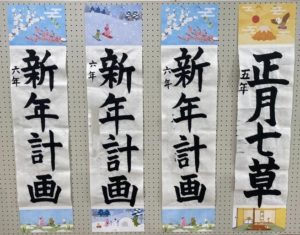 新年計画
六年
新年計画
六年
新年計画
六年
正月七草
五年